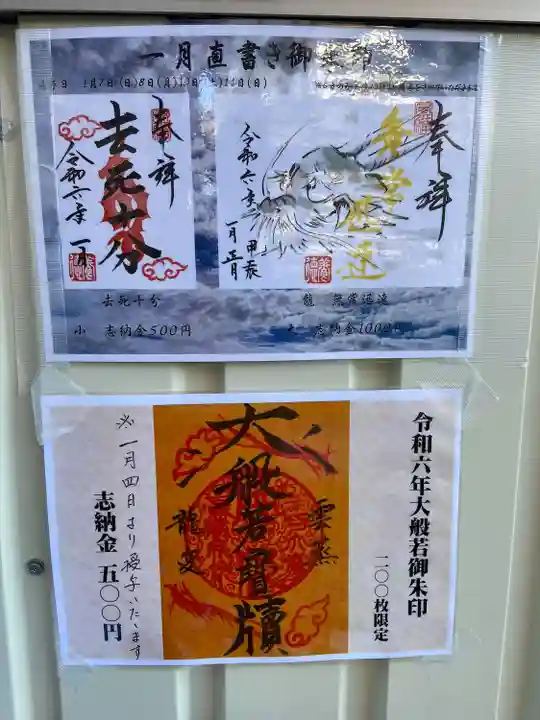 一月直書き御朱印
1月7日(日)8日(月)13日(土)14日(日)
奉拝
去死十分
令和六年一月
奉拝
無常迅速
令和六年
一月正月
甲辰
去死十分
小 志納金500円
龍 無常迅速
大 志納金1000円
令和六年大般若御朱印
二〇〇枚限定
大般若宝牘
雲蒸
龍変
※一月四日より授与いたします
志納金 五〇〇円